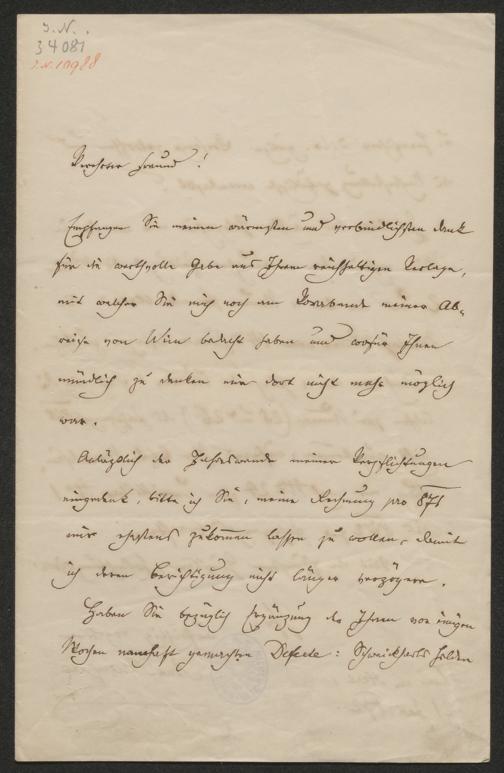 J. N.
34081
J.N. 10988
Verehrter Freund!
Empfangen Sie meinen wärmsten und verbindlichsten Dank
für die werthvolle Gabe aus Ihrem reichhaltigen Verlage,
mit welcher Sie mich noch am Vorabende meiner Ab-
reise von Wien bedacht haben und wofür Ihnen
mündlich zu danken mir dort nicht mehr möglich
war.
Anläßlich der Jahreswende meiner Verpflichtungen
eingedenk, bitte ich Sie, meine Rechnung pro 871
mir ehestens zukommen lassen zu wollen, damit
ich deren Berichtigung nicht länger verzögere.
Haben Sie bezüglich Ergänzung der Ihnen vor einigen
Wochen namhaft gemachten Defecte: Schweickhardts Helden